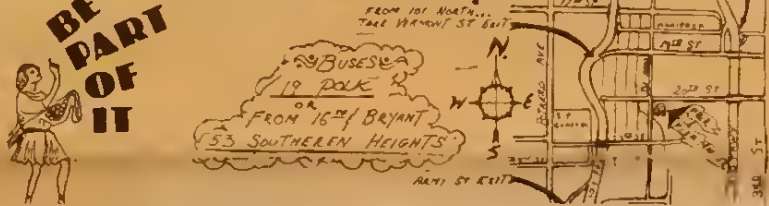 BE
PART
OF
IT
FROM 101 NORTH...
TAKE VERMONT ST EXIT
BUSES
19 POLK
OR
FROM 16TH/BRYANT
53 SOUTHEREN HEIGHTS
N
W
E
S
ARMY ST EXIT
POTRERO AVE
MARIPOSA
19TH ST
20TH ST
3RD ST